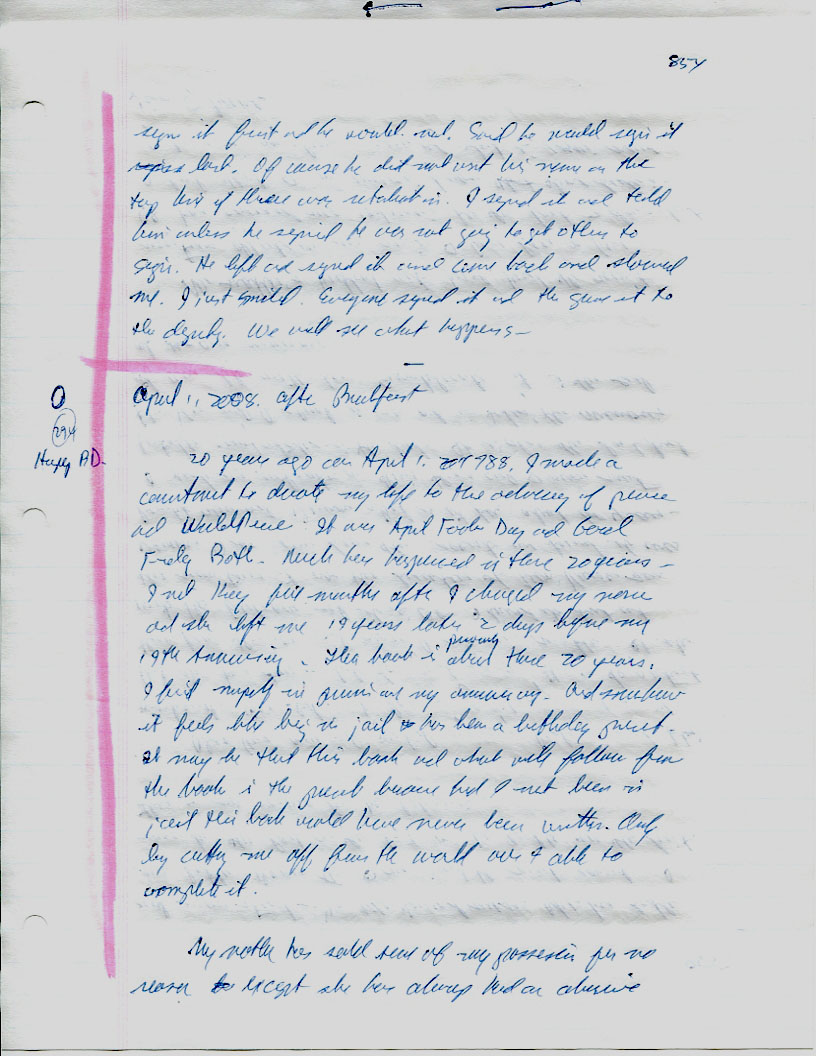 854
sign it first and he would not. Said he would sign it
last. Of course he did not want his name on the
top line if there was retaliation. I signed it and told
him unless he signed he was not going to get others to
sign. He left and signed it and came back and showed
me. I just smiled. Everyone signed it and the gave it to
the deputy. We will see what happens –
April 1, 2008. after Breakfast
294
Happy AD.
20 years ago on April 1. 1988, I made a
commitment to devote my life to the advocacy of peace
and World Peace. It was April Fools Day and Good
Friday Both. Much has happened in these 20 years –
I met five months after I changed my name
and she left me 19 years later 2 days before my
19th Anniversary. This book is primarily about these 20 years.
I find myself in prison on my anniversary. And somehow
it feels like being in jail has been a birthday present.
It may be that this book and what will follow from
the book is the present because had I not been in
jail this book would have never been written. Only
by cutting me off from the world was I able to
complete it.
My mother has sold some of my possessions for no
reason except she has always had an abusive